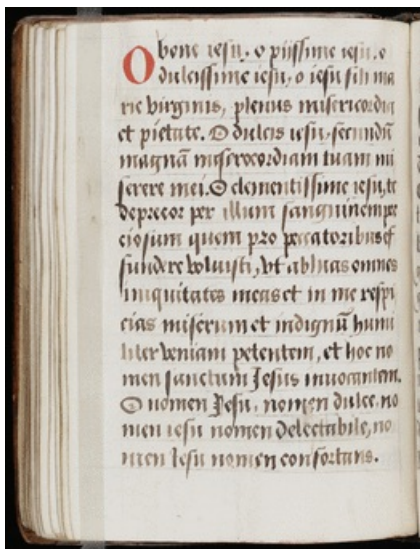 O bone iesu, o piissime iesu, o
dulcissime iesu, o iesu fili ma
rie virginis, plenus misericordia
et pietate. O dulcis iesu, secundū
magnā miserocordiam tuam mi
serere mei. O clementissime iesu, te
deprecor per illum sanguinem pre
ciosum quem pro peccatoribus ef
fundere voluisti, vt abluas omnes
iniquitates meas et in me respi
cias miserum et indignū humi
liter veniam petentem, et hoc no
men sanctum Jesus invocantem.
O nomen Jesu, nomen dulce, no
men iesu nomen delectabile, no
men Iesu nomen confortans.